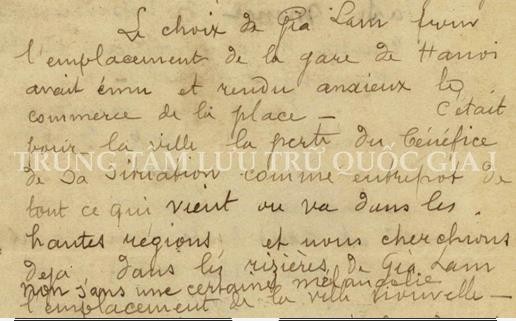 Le choix de Gia Lam pour
l'emplacement de la gare de Hanoi
avait ému et rendu anxieux le
commerce de la place — C'était
pour la ville la perte du bénéfice
TRUNG TÂM LƯU TRỮ QUỐC GIA I
de sa situation comme entrepôt de
tout ce qui vient ou va dans les
hautes régions, et nous cherchions
deja dans les rizières de Gia Lam
non sans une certaine mélancolie
l'emplacement de la ville nouvelle —